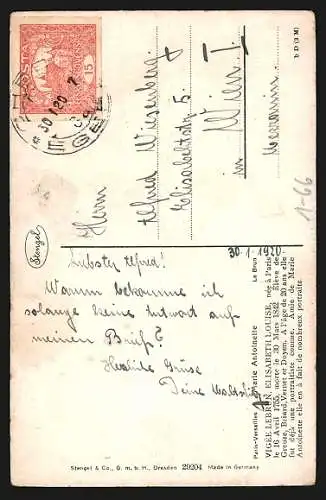 Herrn
Alfred Wiesenberg
Elisabethstr. 5.
in Wien I
1-66
30.1.1920
Liebster Alfred!
Warum bekomme ich
solange keine Antwort auf
meinen Brief?
Herzliche Grüsse
Deine
Stengel
15
30 I 20
Paris-Versailles Marie Antoinette Le Brun
VIGÉE LEBRUN, ELISABETH LOUISE, née à Paris
le 16 Avril 1755, morte le 30 Mars 1842. Élève de
Greuze, Briard, Vernet et Doyen. A l'âge de 20 ans elle
fut déjà une portraitiste connue. Amie de Marie
Antoinette elle en a fait de nombreux portraits
b D (3 M)
Stengel & Co., G. m. b. H., Dresden 29204 Made in Germany